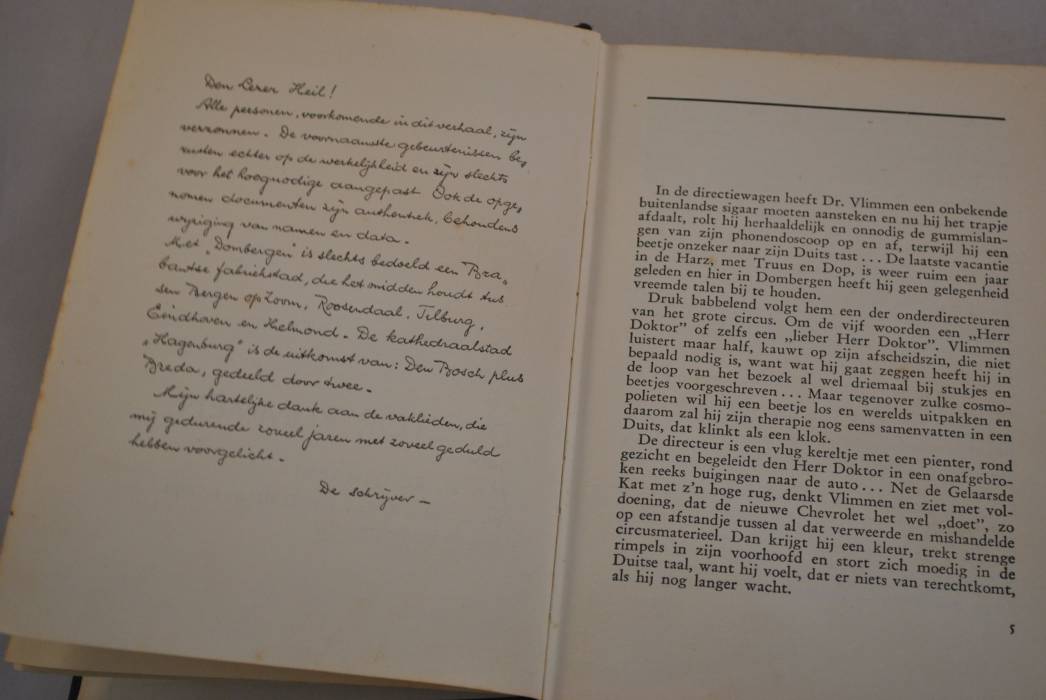 Den Lezer Heil!
Alle personen, voorkomende in dit verhaal, zijn
verzonnen. De voornaamste gebeurtenissen be„
rusten echter op de werkelijkheid en zijn slechts
voor het hoognodige aangepast. Ook de opge„
nomen documenten zijn authentiek, behoudens
wijziging van namen en data.
Met „Dombergen" is slechts bedoeld een Bra„
bantse fabriekstad, die het midden houdt tus
sen Bergen op Zoom, Roosendaal, Tilburg,
Eindhoven en Helmond. De kathedraalstad
„Hagenburg" is de uitkomst van: Den Bosch plus
Breda, gedeeld door twee.
Mijn hartelijke dank aan de vaklieden, die
mij gedurende zoveel jaren met zoveel geduld
hebben voorgelicht.
De schrijver —
In de directiewagen heeft Dr. Vlimmen een onbekende
buitenlandse sigaar moeten aansteken en nu hij het trapje
afdaalt, rolt hij herhaaldelijk en onnodig de gummislan-
gen van zijn phonendoscoop op en af, terwijl hij een
beetje onzeker naar zijn Duits tast . . . De laatste vacantie
in de Harz, met Truus en Dop, is weer ruim een jaar
geleden en hier in Dombergen heeft hij geen gelegenheid
vreemde talen bij te houden.
Druk babbelend volgt hem een der onderdirecteuren
van het grote circus. Om de vijf woorden een „Herr
Doktor" of zelfs een „lieber Herr Doktor". Vlimmen
luistert maar half, kauwt op zijn afscheidszin, die niet
bepaald nodig is, want wat hij gaat zeggen heeft hij in
de loop van het bezoek al wel driemaal bij stukjes en
beetjes voorgeschreven . . . Maar tegenover zulke cosmo-
polieten wil hij een beetje los en werelds uitpakken en
daarom zal hij zijn therapie nog eens samenvatten in een
Duits, dat klinkt als een klok.
De directeur is een vlug kereltje met een pienter, rond
gezicht en begeleidt den Herr Doktor in een onafgebro-
ken reeks buigingen naar de auto . . . Net de Gelaarsde
Kat met z'n hoge rug, denkt Vlimmen en ziet met vol-
doening, dat de nieuwe Chevrolet het wel „doet", zo
op een afstandje tussen al dat verweerde en mishandelde
circusmaterieel. Dan krijgt hij een kleur, trekt strenge
rimpels in zijn voorhoofd en stort zich moedig in de
Duitse taal, want hij voelt, dat er niets van terechtkomt,
als hij nog langer wacht.
5